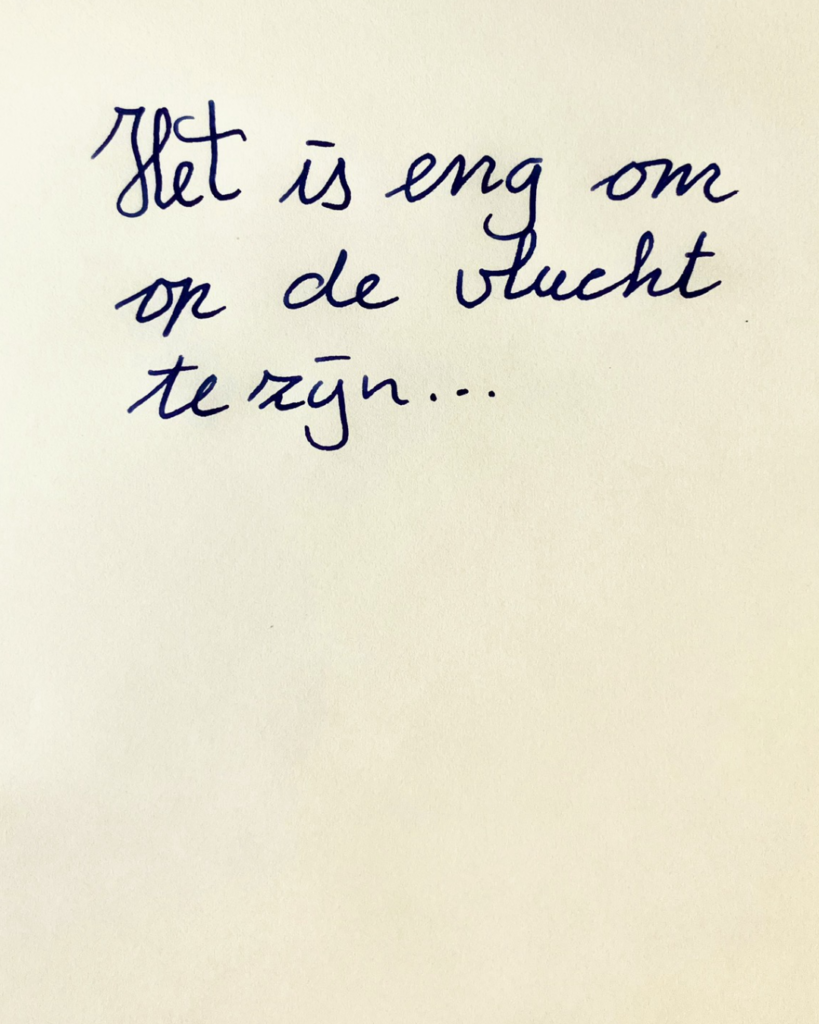 Het is eng om
op de vlucht
te zijn...